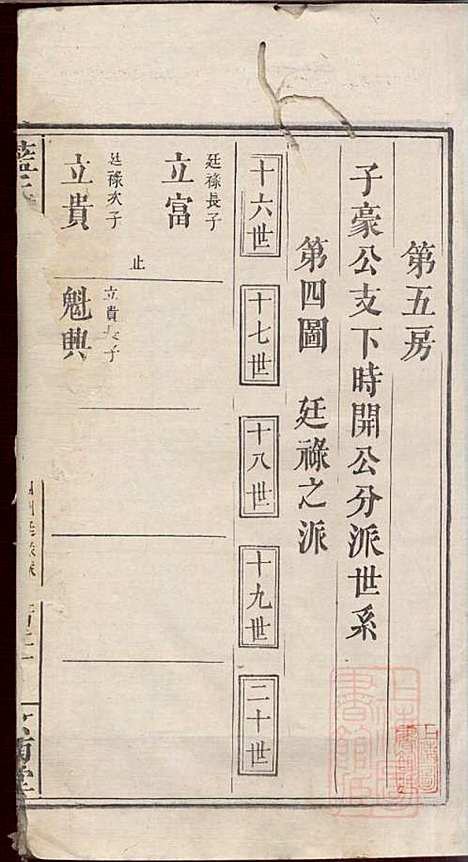 第五房
子豪公支下時開公分派世系
第四圖 廷祿之派
十六世 十七世 十八世 十九世 二十世
廷祿長子
立富
止
廷祿次子
立貴
立貴長子
魁興
藍氏